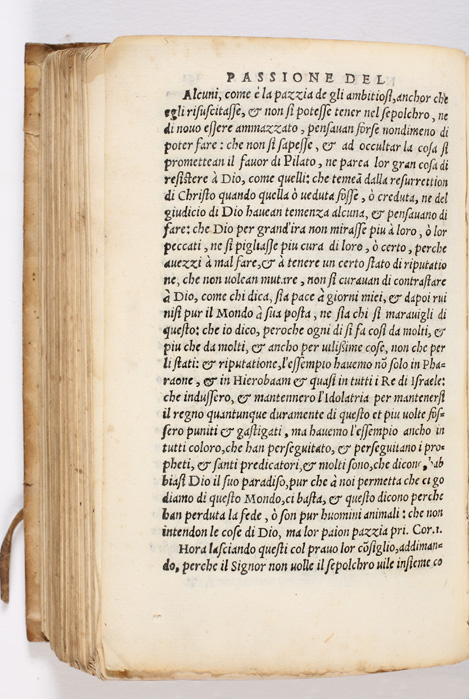 PASSIONE DEL
Alcuni, come è la pazzia de gli ambitiosi, anchor che
egli risuscitasse, & non si potesse tener nel sepolchro, ne
di novo essere ammazzato, pensavan forse nondimeno di
poter fare: che non si sapesse, & ad occultar la cosa si
promettean il favor di Pilato, ne parea lor gran cosa di
resistere à Dio, come quelli: che temeā dalla resurrettion
di Christo quando quella ò veduta fosse, ò creduta, ne del
giudicio di Dio havean temenza alcuna, & pensavano di
fare: che Dio per grand'ira non mirasse piu à loro, ò lor
peccati, ne si pigliasse piu cura di loro, ò certo, perche
avezzi à mal fare, & à tenere un certo stato di riputatio
ne, che non volean mutare, non si curavan di contrastare
à Dio, come chi dica, sia pace à giorni miei, & dapoi rui
nisi pur il Mondo à sua posta, ne sia chi si maravigli di
questo: che io dico, peroche ogni dì si fa così da molti, &
piu che da molti, & ancho per vilißime cose, non che per
li stati: & riputatione, l'essempio havemo nō solo in Pha-
raone, & in Hierobaam & quasi in tutti i Re di Israele:
che indussero, & mantennero l'Idolatria per mantenersi
il regno quantunque duramente di questo et piu volte fos-
sero puniti & gastigati, ma havemo l'essempio ancho in
tutti coloro, che han perseguitato, & perseguitano i pro-
pheti, & santi predicatori, & molti sono, che dicono, hab
biasi Dio il suo paradiso, pur che à noi permetta che ci go
diamo di questo Mondo, ci basta, & questo dicono perche
han perduta la fede, ò son pur huomini animali: che non
intendon le cose di Dio, ma lor paion pazzia pri. Cor. 1.
Hora lasciando questi col pravo lor cōsiglio, addiman-
do, perche il Signor non volle il sepolchro vile insieme co